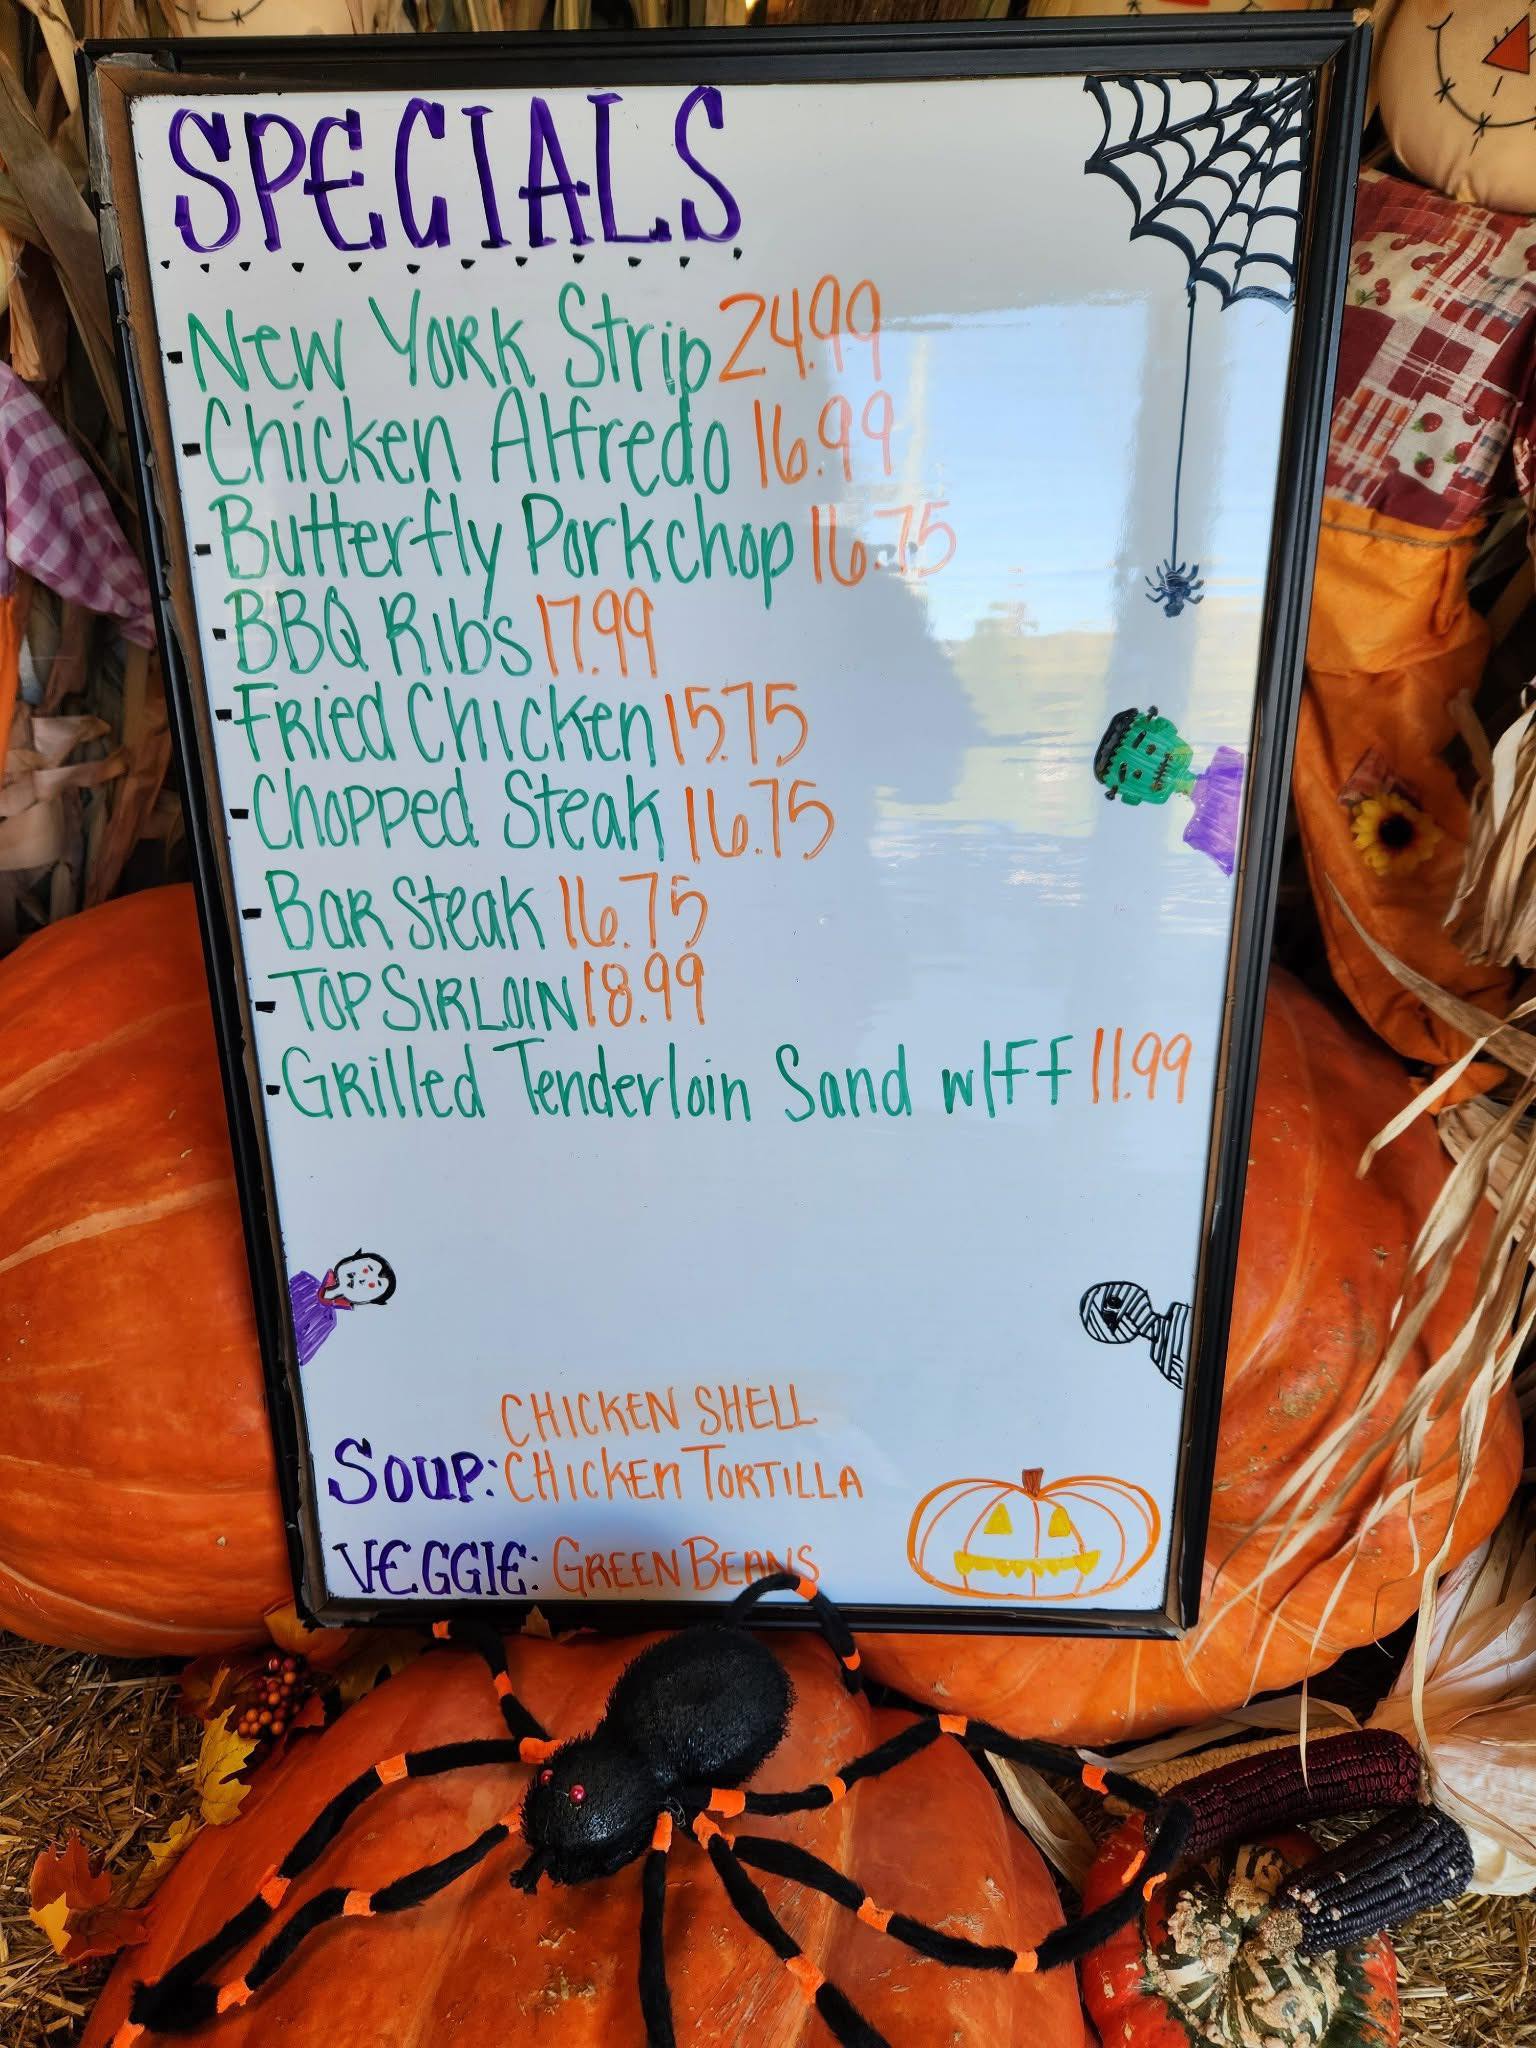 SPECIALS
New York Strip 24.99
Chicken Alfredo 16.99
Butterfly Porkchop 16.75
BBQ Ribs 17.99
Fried Chicken 15.75
Chopped Steak 16.75
Bar Steak 16.75
Top Sirloin 18.99
Grilled Tenderloin Sand w/FF 11.99
CHICKEN SHELL
Soup: CHICKEN TORTILLA
VEGGIE: GREEN BEANS